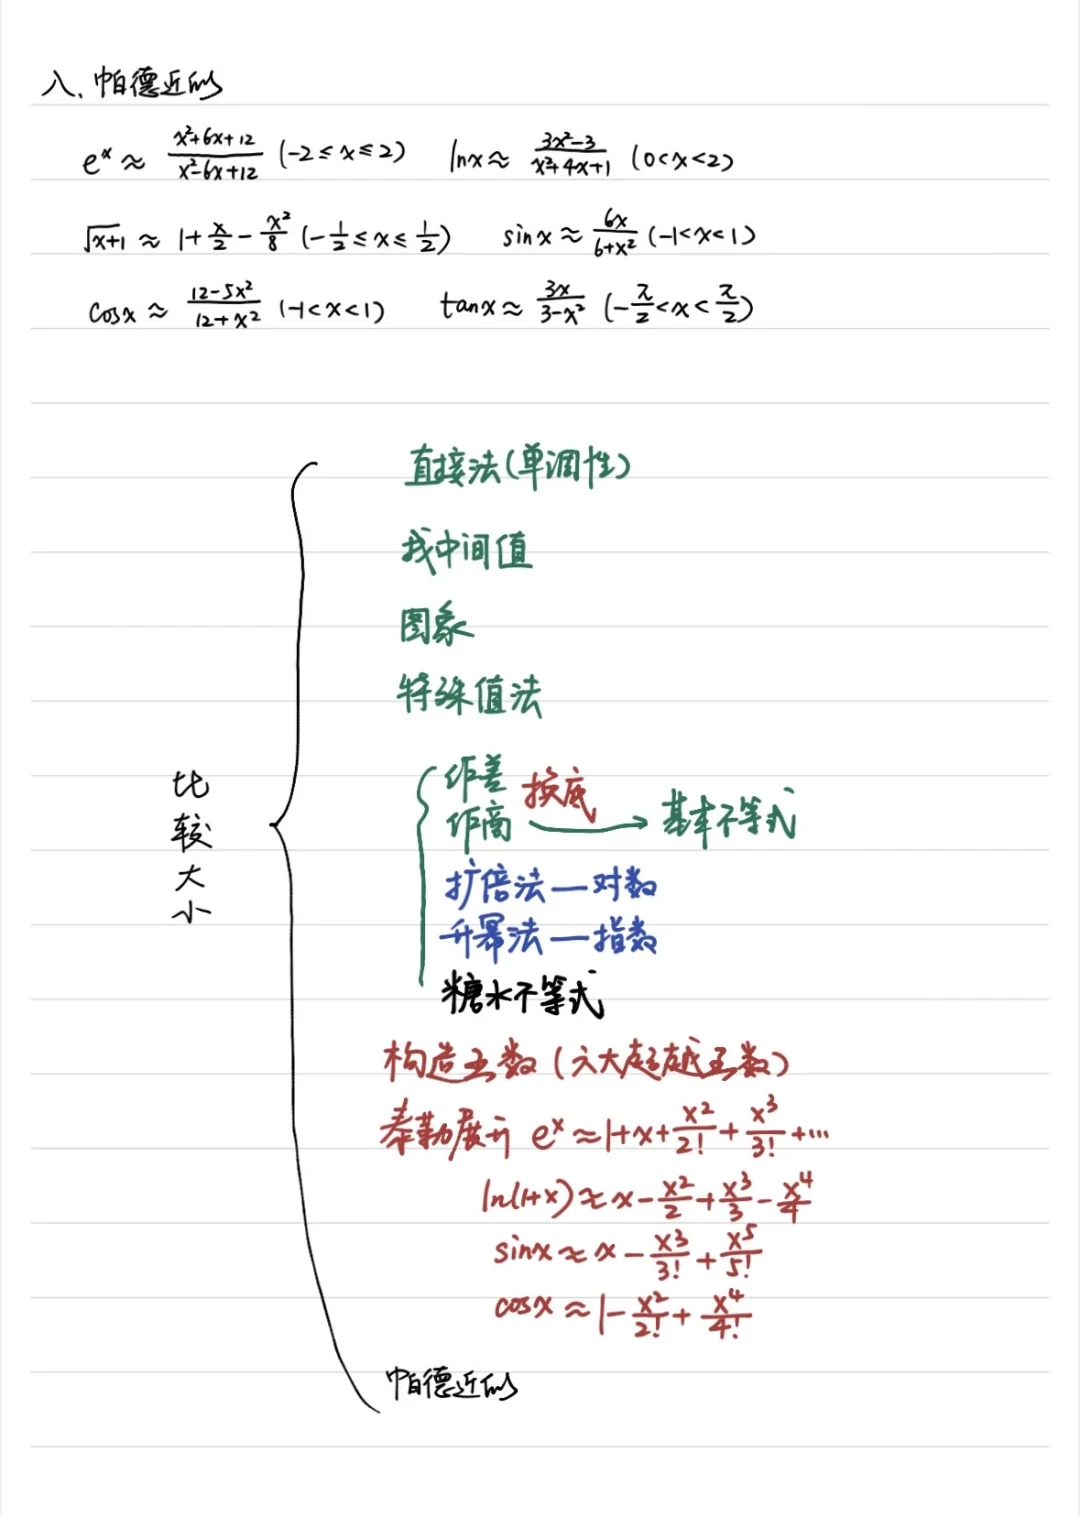 八、帕德近似
e^x ≈ (x²+6x+12)/(x²-6x+12) (-2≤x≤2) lnx≈ (3x²-3)/(x²+4x+1) (0<x<2)
√(x+1) ≈ 1+x/2-x²/8 (-1/2≤x≤1/2) sinx≈ 6x/(6+x²) (-1<x<1)
cosx ≈ (12-5x²)/(12+x²) (-1<x<1) tanx≈ 3x/(3-x²) (-π/2<x<π/2)
比较大小
直接法(单调性)
找中间值
图象
特殊值法
作差 换底
作商 → 基本不等式
扩倍法—对数
升幂法—指数
糖水不等式
构造函数(六大超越函数)
泰勒展开 e^x≈1+x+x²/2!+x³/3!+…
ln(1+x)≈x-x²/2+x³/3-x⁴/4
sinx≈x-x³/3!+x⁵/5!
cosx≈1-x²/2!+x⁴/4!
帕德近似